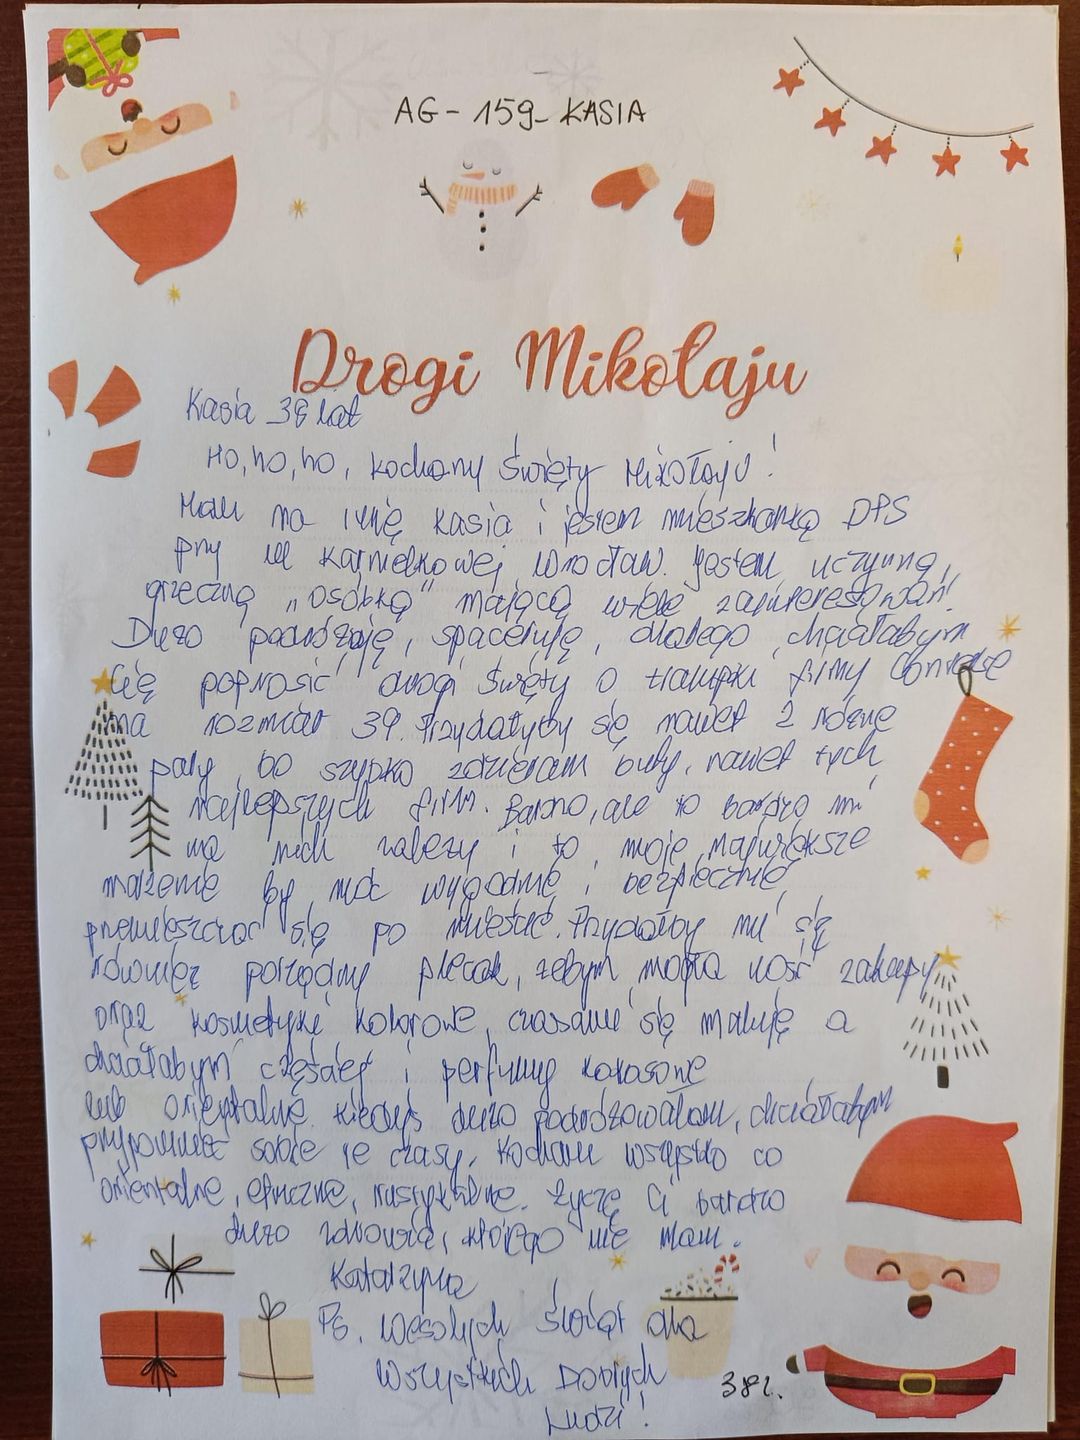 AG - 159 - KASIA
Drogi Mikołaju
Kasia 38 lat
Ho, ho, ho, kochany Święty Mikołaju!
Mam na imię Kasia i jestem mieszkanką DPS
przy ul Karmelkowej Wrocław. Jestem uczynną,
grzeczną "osóbką" mającą wiele zainteresowań.
Dużo podróżuję, spaceruję, dlatego chciałabym
Cię poprosić drogi Święty o trampki firmy Converse
na rozmiar 39. Przydałyby się nawet 2 różne
pary, bo szybko zdzieram buty, nawet tych
najlepszych firm. Bardzo, ale to bardzo mi
na nich zależy i to moje największe
marzenie by móc wygodnie i bezpiecznie
przemieszczać się po mieście. Przydałby mi się
również porządny plecak, żebym mogła nosić zakupy
oraz kosmetyki kolorowe, czasami się maluję a
chciałabym częściej i perfumy kokosowe
lub orientalne. Kiedyś dużo podróżowałam, chciałabym
przypomnieć sobie te czasy. Kocham wszystko co
orientalne, etniczne, rustykalne. Życzę Ci bardzo
dużo zdrowia, którego nie mam.
Katarzyna
PS. Wesołych Świąt dla
Wszystkich Dobrych
Ludzi!
38 l.